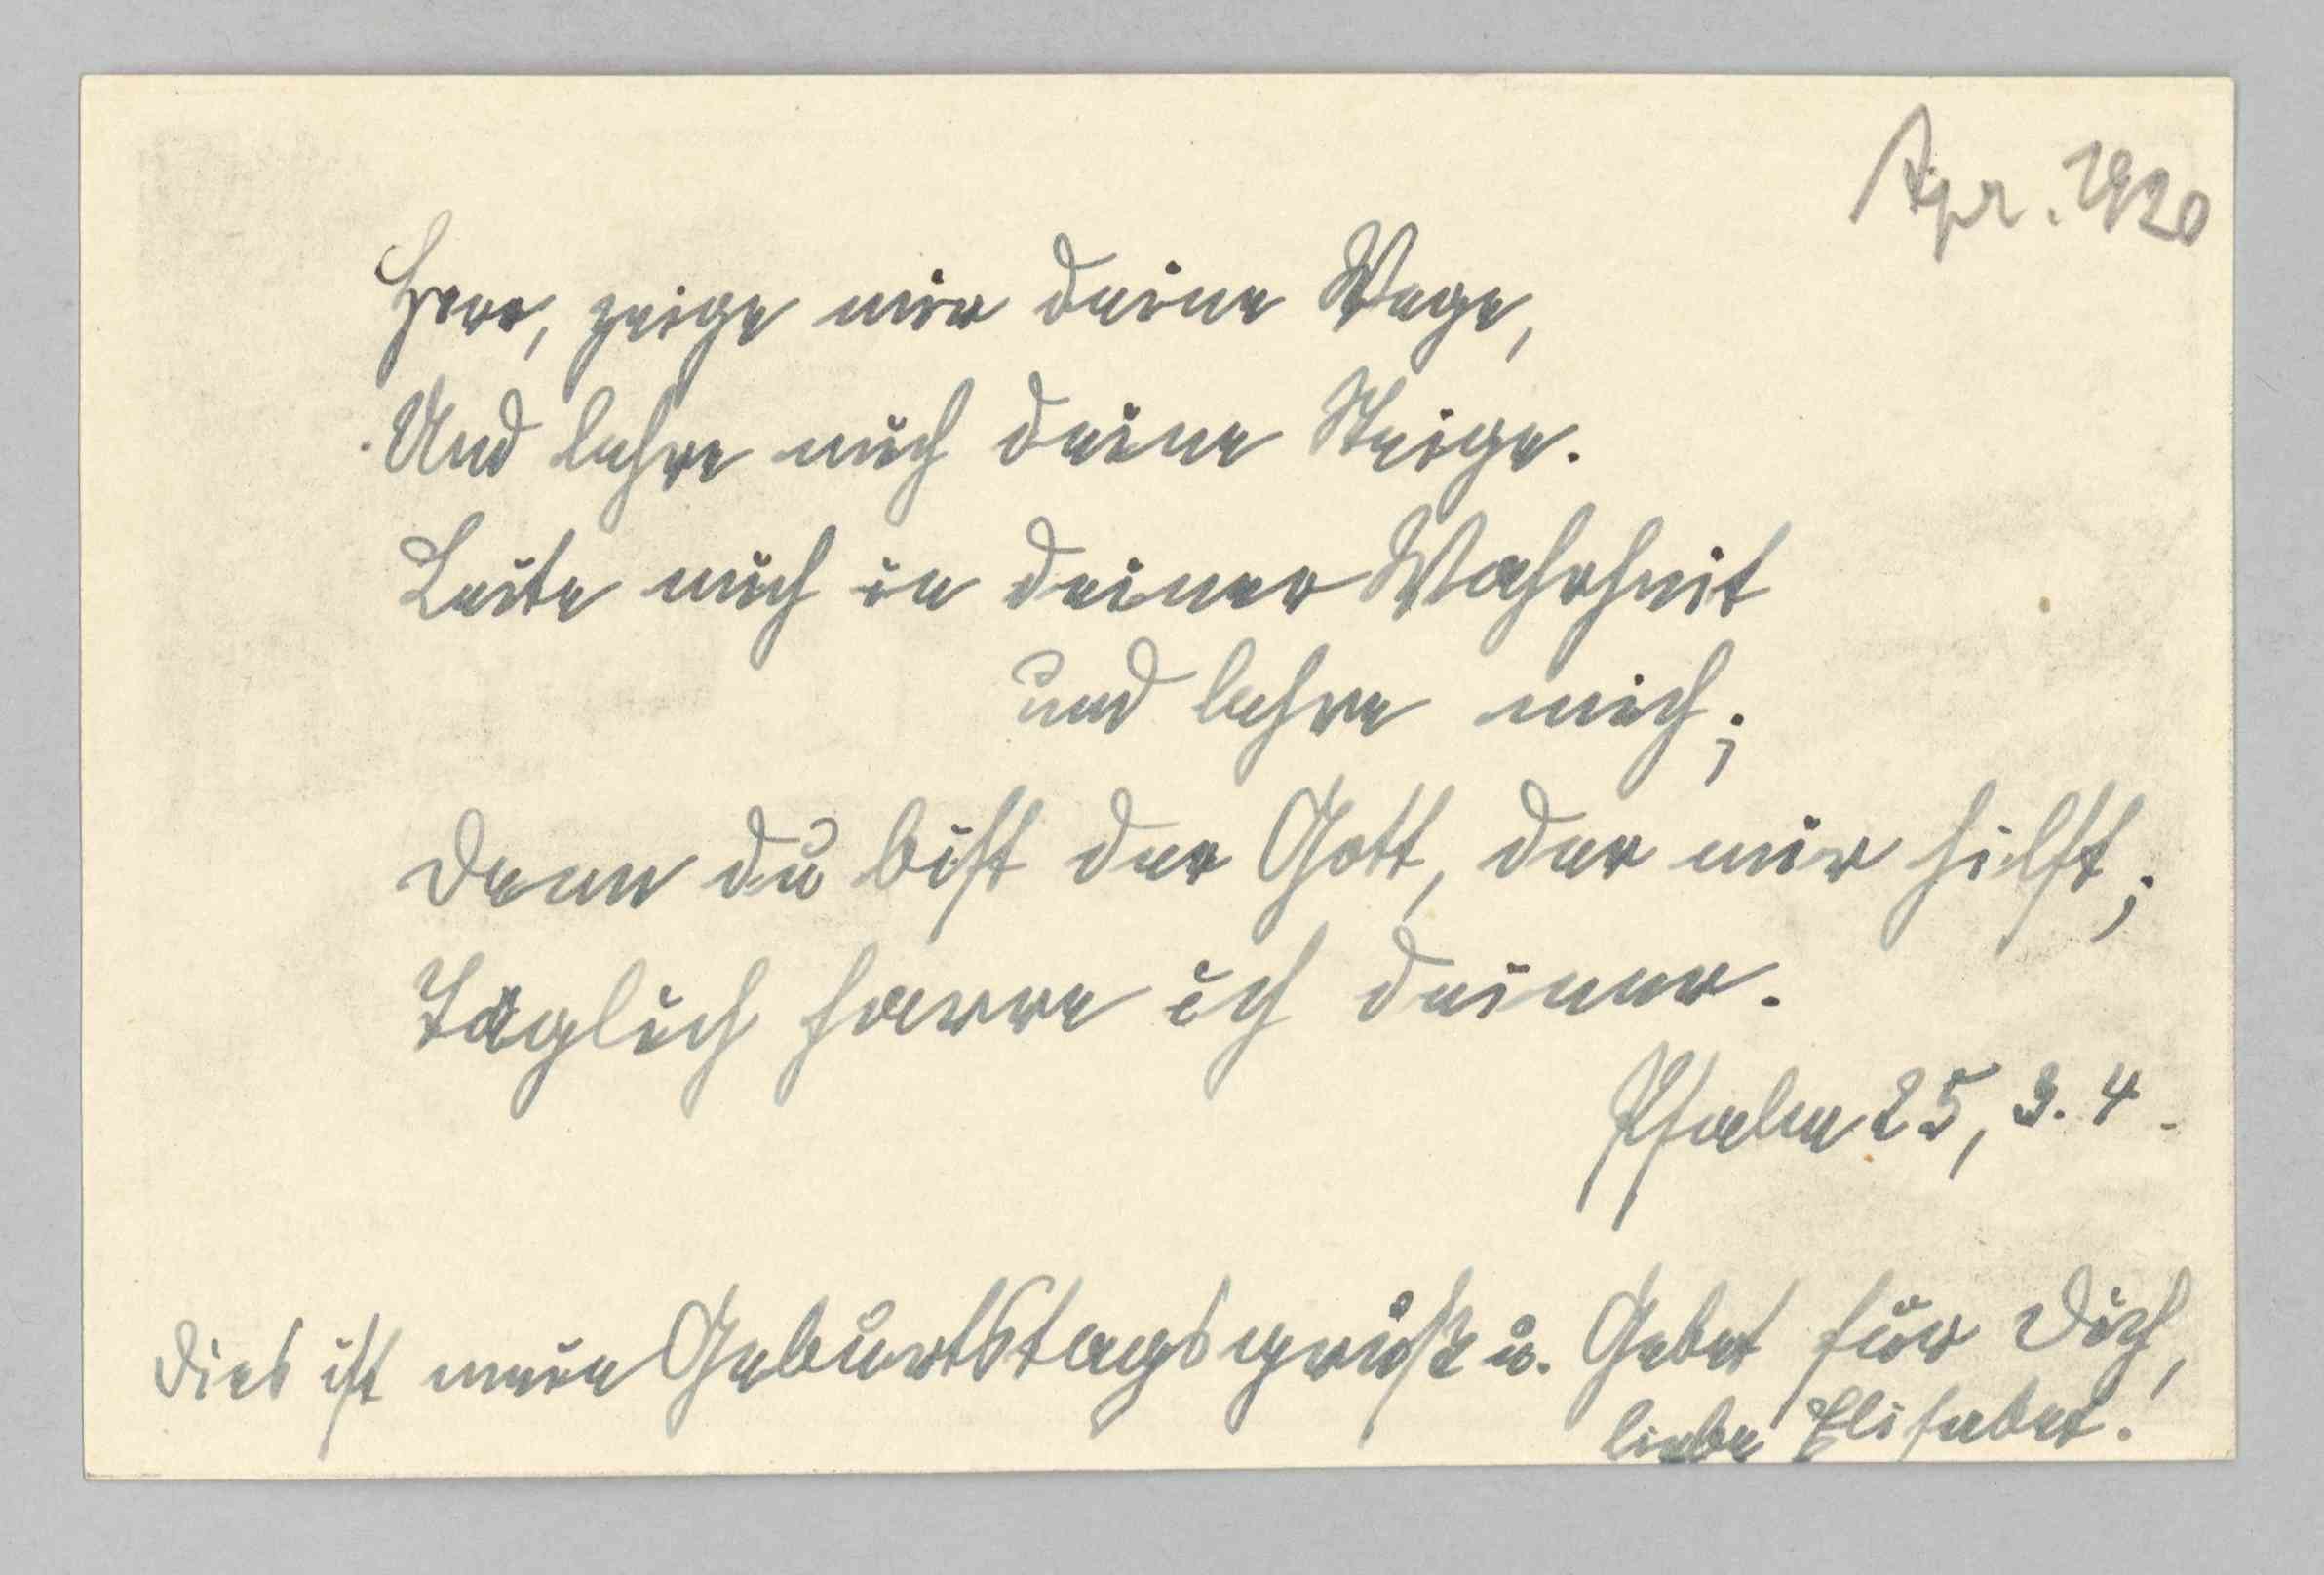 Apr. 1920
Herr, zeige mir deine Wege,
Und lehre mich deine Steige.
Leite mich in deiner Wahrheit
und lehre mich;
Denn du bist der Gott, der mir hilft;
Täglich harre ich deiner.
Psalm 25, 3. 4.
Dies ist mein Geburtstagsgruß u. Gebet für Dich,
liebe Elisabet.